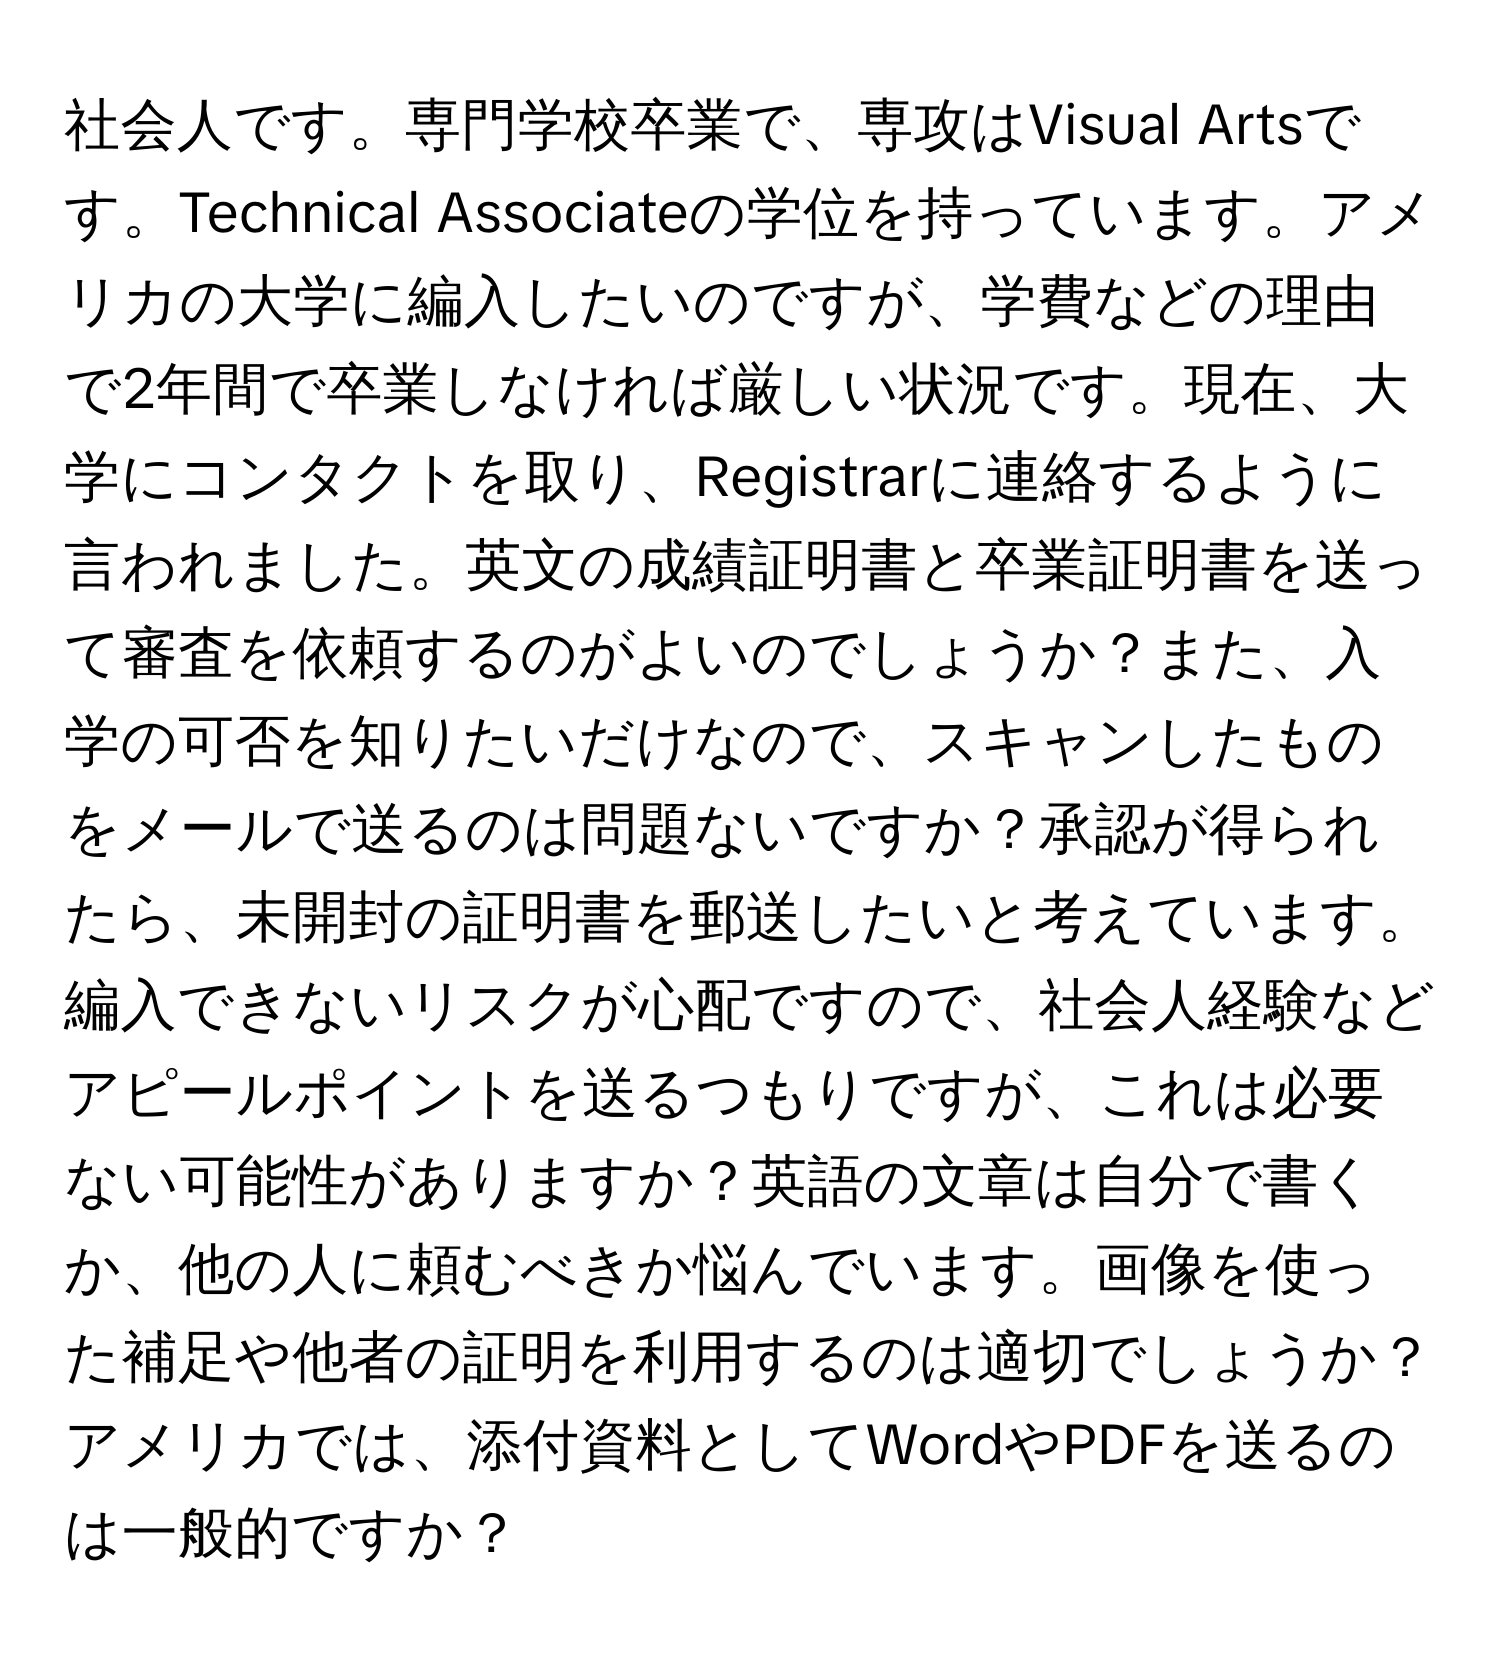 社会人です。専門学校卒業で、専攻はVisual Artsで
す。Technical Associateの学位を持っています。アメ
リカの大学に編入したいのですが、学費などの理由
で2年間で卒業しなければ厳しい状況です。現在、大
学にコンタクトを取り、Registrarに連絡するように
言われました。英文の成績証明書と卒業証明書を送っ
て審査を依頼するのがよいのでしょうか？また、入
学の可否を知りたいだけなので、スキャンしたもの
をメールで送るのは問題ないですか？承認が得られ
たら、未開封の証明書を郵送したいと考えています。
編入できないリスクが心配ですので、社会人経験など
アピールポイントを送るつもりですが、これは必要
ない可能性がありますか？英語の文章は自分で書く
か、他の人に頼むべきか悩んでいます。画像を使っ
た補足や他者の証明を利用するのは適切でしょうか？
アメリカでは、添付資料としてWordやPDFを送るの
は一般的ですか？